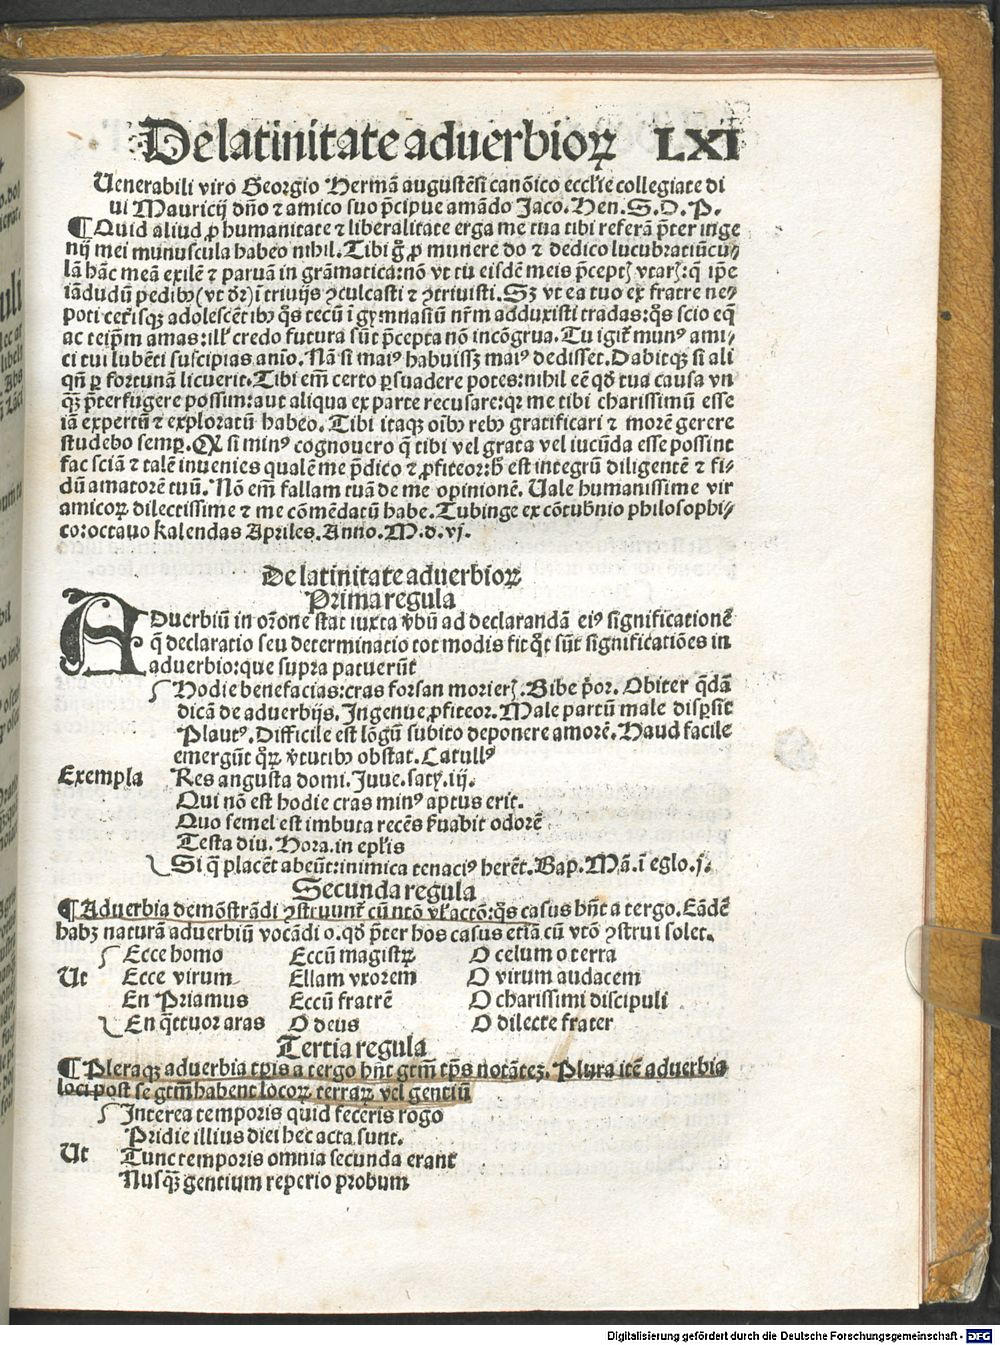 De latinitate aduerbioꝝ LXI
Uenerabili viro Georgio Hermā augustēsi canōico eccl'ie collegiate di
ui Mauricij dn̄o ⁊ amico suo p̄cipue amādo Jaco. Hen. S. D. P.
¶ Quid aliud ꝓ humanitate ⁊ liberalitate erga me tua tibi referā p̄ter inge
nij mei munuscula habeo nihil. Tibi g̊ ꝓ munere do ⁊ dedico lucubratiūcu⸗
lā hāc meā exilē ⁊ paruā in grāmatica: nō vt tu eisdē meis p̄cept vtar: q̄ ip̄e
iādudū pedibꝰ (vt dr̄) ī triuijs ꝯculcasti ⁊ ꝯtriuisti. Sꝫ vt ea tuo ex fratre ne⸗
poti ceterisqꝫ adolescētibꝰ q̄s tecū ī gymnasiū nr̄m adduxisti tradas: q̄s scio eq̄
ac teip̄m amas: ill' credo futura sūt p̄cepta nō incōgrua. Tu igit̄ munꝰ ami⸗
ci tui lubēti suscipias anīo. Nā si maiꝰ habuissꝫ maiꝰ dedisset. Dabitqꝫ si ali
qn̄ ꝑ fortunā licuerit. Tibi em̄ certo ꝑsuadere potes: nihil eē qd̄ tua causa vn
qꝫ p̄terfugere possim: aut aliqua ex parte recusare: qꝛ me tibi charissimū esse
iā expertū ⁊ exploratū habeo. Tibi itaqꝫ oībꝰ rebꝰ gratificari ⁊ morē gerere
studebo semꝑ. Qꝫ si minꝰ cognouero q̄ tibi vel grata vel iucūda esse possint
fac sciā ⁊ talē inuenies qualē me p̄dico ⁊ ꝓfiteor: h̄ est integrū diligentē ⁊ fi⸗
dū amatorē tuū. Nō em̄ fallam tuā de me opinionē. Uale humanissime vir
amicoꝝ dilectissime ⁊ me cōmēdatū habe. Tubinge ex cōtubn̄io philosophi⸗
co: octauo kalendas Apriles. Anno. M. d. vj.
De latinitate aduerbioꝝ
Prima regula
ADuerbiū in or̄one stat iuxta v̄bū ad declarandā eiꝰ significationē
q̄ declaratio seu determinatio tot modis fit qt̄ sūt significatiōes in
aduerbio: que supra patuerūt
Hodie benefacias: cras forsan morier. Bibe p̄or. Obiter q̄dā
dicā de aduerbijs. Ingenue ꝓfiteor. Male partū male disp̄sit
Plautꝰ. Difficile est lōgū subito deponere amorē. Haud facile
emergūt qꝝ v̄tutibꝰ obstat. Catullꝰ
Exempla Res angusta domi. Juue. saty. iij.
Qui nō est hodie cras minꝰ aptus erit.
Quo semel est imbuta recēs ẜuabit odorē
Testa diu. Hora. in epl'is
Si q̄ placēt abeūt: inimica tenaciꝰ herēt. Bap. Mā. ī eglo. j.
Secunda regula
¶ Aduerbia demōstrādi ꝯstruunt̄ cū ntō vl' actō: q̄s casus hn̄t a tergo. Eādē
habꝫ naturā aduerbiū vocādi o. qd̄ p̄ter hos casus etiā cū vtō ꝯstrui solet.
Ecce homo Eccū magistꝝ O celum o terra
Ut Ecce virum Ellam vxorem O virum audacem
En Priamus Eccū fratrē O charissimi discipuli
En q̄ttuor aras O deus O dilecte frater
Tertia regula
¶ Pleraqꝫ aduerbia tp̄is a tergo hn̄t gtm̄ tp̄s notātē. Plura itē aduerbia
loci post se gtm̄ habent locoꝝ terraꝝ vel gentiū
Interea temporis quid feceris rogo
Pridie illius diei hec acta sunt.
Ut Tunc temporis omnia secunda erant
Nusqꝫ gentium reperio probum
Digitalisierung gefördert durch die Deutsche Forschungsgemeinschaft - DFG